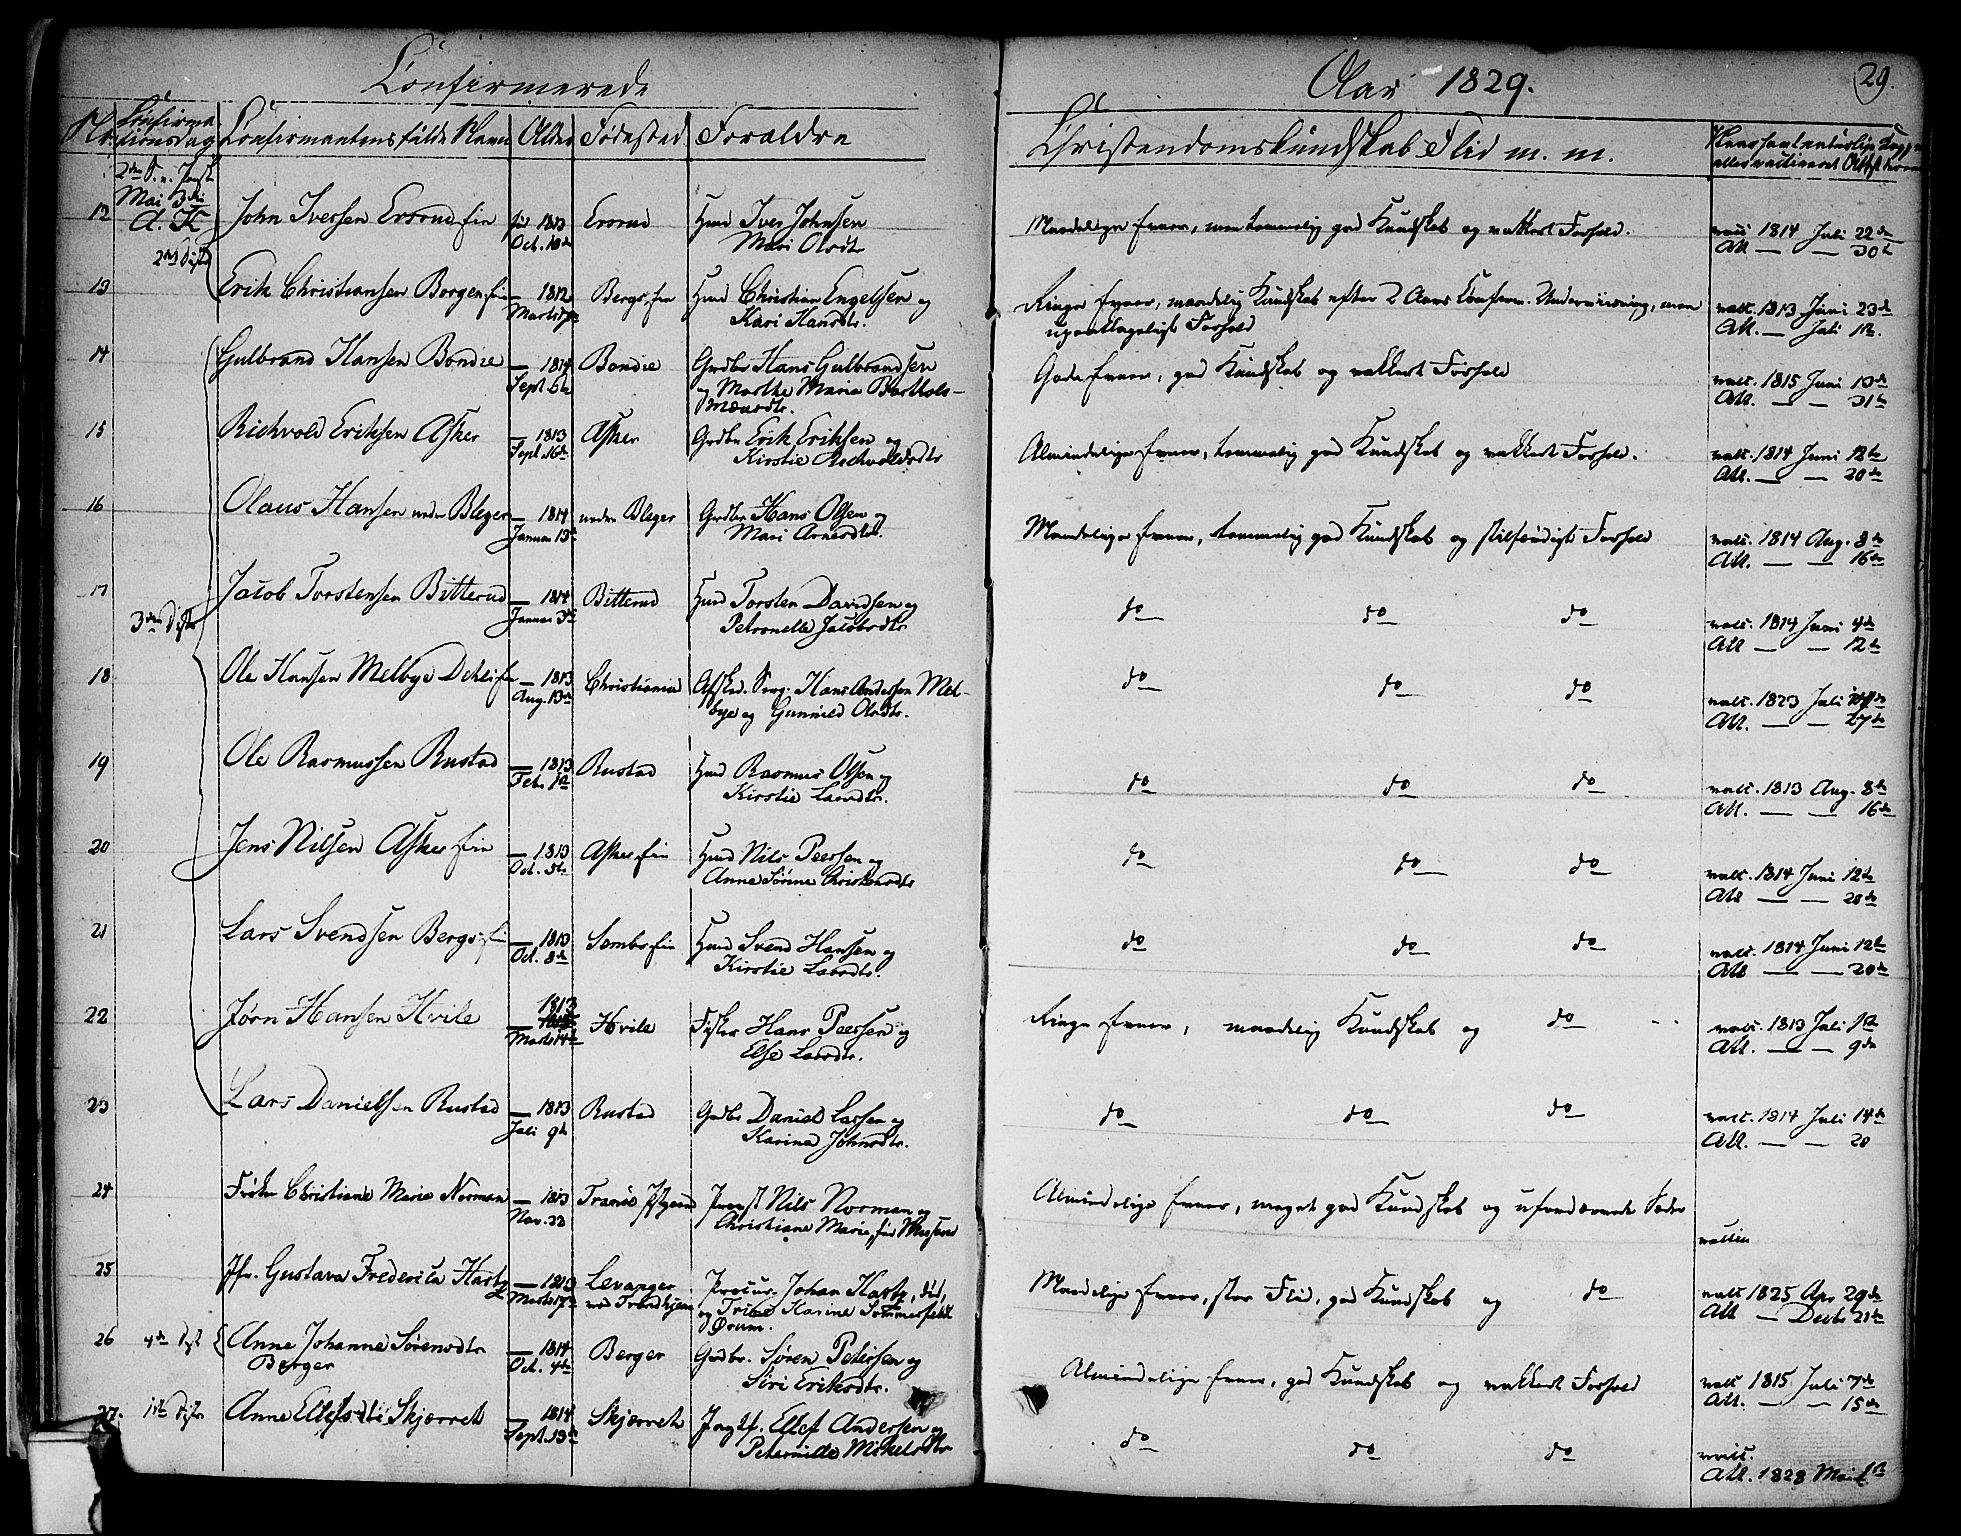 Confirmerede
Aar 1829.
29.
Nr. Confirmationsdag Confirmantens fulde Navn Alder Fødested Forældre
Christendomskundskab Flid m. m.
Mai 3die
A. K
12 John Iversen Evsrud Eie før 1813 Oct. 10de Evsrud Huusmd Iver Johnsen
Mari Olsdtr
Maadelige Evner, men temmelig god Kundskab og vakkert Forhold.
vacc. 1814 Juli 22de
Att. — — 30te
2den Distr
13 Erik Christiansen Borgen Eie — 1812 Berg Eie Huusmd Christian Engelsen og
Kari Hansdtr.
Ringe Evner, maadelig Kundskab efter 2 Aars Conferm. Underviisning, men
upaaklageligt Forhold
vacc. 1813 Juni 23de
Att. — Juli
14 Gulbrand Hansen Bondie — 1814 Sept. 6te Bondie Grdbr Hans Gulbrandsen
og Marthe Maria Barthole-
mæusdtr.
Gode Evner, god Kundskab og vakkert Forhold
vacc. 1815 Juni
Att. — —
15 Richvold Eriksen Asker — 1813 Sept. 16de Asker Grdbr Erik Eriksen og
Kirstie Richvoldsdtr
Almindelige Evner, temmelig god Kundskab og vakkert Forhold.
vacc. 1814 Juni 12te
Att. — — 20de
16 Olaus Hansen nedre Bleger — 1814 Januar 13de nedre Bleger Grdbr Hans Olsen og
Mari Arnesdtr.
Maadelige Evner, temmelig god Kundskab og stilfærdigt Forhold
vacc. 1814 Aug. 8de
Att. — — 16de
17 Jacob Torstensen Bitterud — 1814 Januar 3die Bitterud Huusmd Torsten Davidsen og
Petronelle Jacobsdtr
do do do
vacc. 1814 Juni 4de
Att. — — 12te
3die Distr
18 Ole Hansen Melbye — 1813 Aug. 13de Christiania Afsked. Serg. Hans Andersen Mel-
bye og Gunnild Olsdtr.
do do do
vacc. 1823 Juli
Att. — — 27de
19 Ole Rasmussen Rustad — 1813 Feb. 1ste Rustad Huusmd Rasmus Olsen og
Kirstie Larsdtr.
do do do
vacc. 1813 Aug. 8de
Att. — — 16de
20 Jens Nilsen Asker Eie — 1813 Oct. 5te Asker Eie Huusmd Nils Peersen og
Anne Sønne Christensdtr
do do do
vacc. 1814 Juni 12te
Att — — 20de
21 Lars Svendsen Bergs Eie — 1813 Oct. 8de Sembs Eie Huusmd Svend Hansen og
Kirstie Larsdtr.
do do do
vacc. 1814 Juni 12te
Att — — 20de
22 Jørn Hansen Hvile 1813 Marts 14de Hvile Fisker Hans Peersen og
Else Larsdtr.
Ringe Evner, maadelig Kundskab og do
vacc. 1813 Juli 1ste
Att. — — 9de
23 Lars Danielsen Rustad — 1813 Juli 9de Rustad Grdbr Daniel Larsen og
Karine Johnsdtr.
do do do
vacc. 1814 Juli 14de
Att. — — 20
24 Frøken Christiane Marie Norman — 1813 Nov. 22 Tranøe Præstgjeld Provst Nils Norman og
Christiane Marie, født Musæus
Almindelige Evner, meget god Kundskab og ufordærvede Sæder
vaccin
25 Jfr. Gustava Frederica Hartz — 1813 Marts Levanger
ved Trondhjem Procur. Johan Hartz, død,
og Trine Karine Sommerfeldt
Ørum.
Maadelige Evner, stor Flid, god Kundskab og do
vacc. 1825 Apr 29de
Att — Decbr 21de
26 4de Distr Anne Johanne Sørensdtr
Berger — 1814 Oct. 4de Berger Grdbr. Søren Petersen og
Siri Eriksdtr.
Almindelige Evner, god Kundskab og vakkert Forhold
vacc 1815 Juli 7de
Att. — — 15de
27. 1ste Distr Anne Ellefsdtr Skjørret — 1814 Sept. 13de Skjørret Ellef Andersen og
Peternille Mikelsdtr
do do do
vacc.
Att. 1828 Mai 1ste